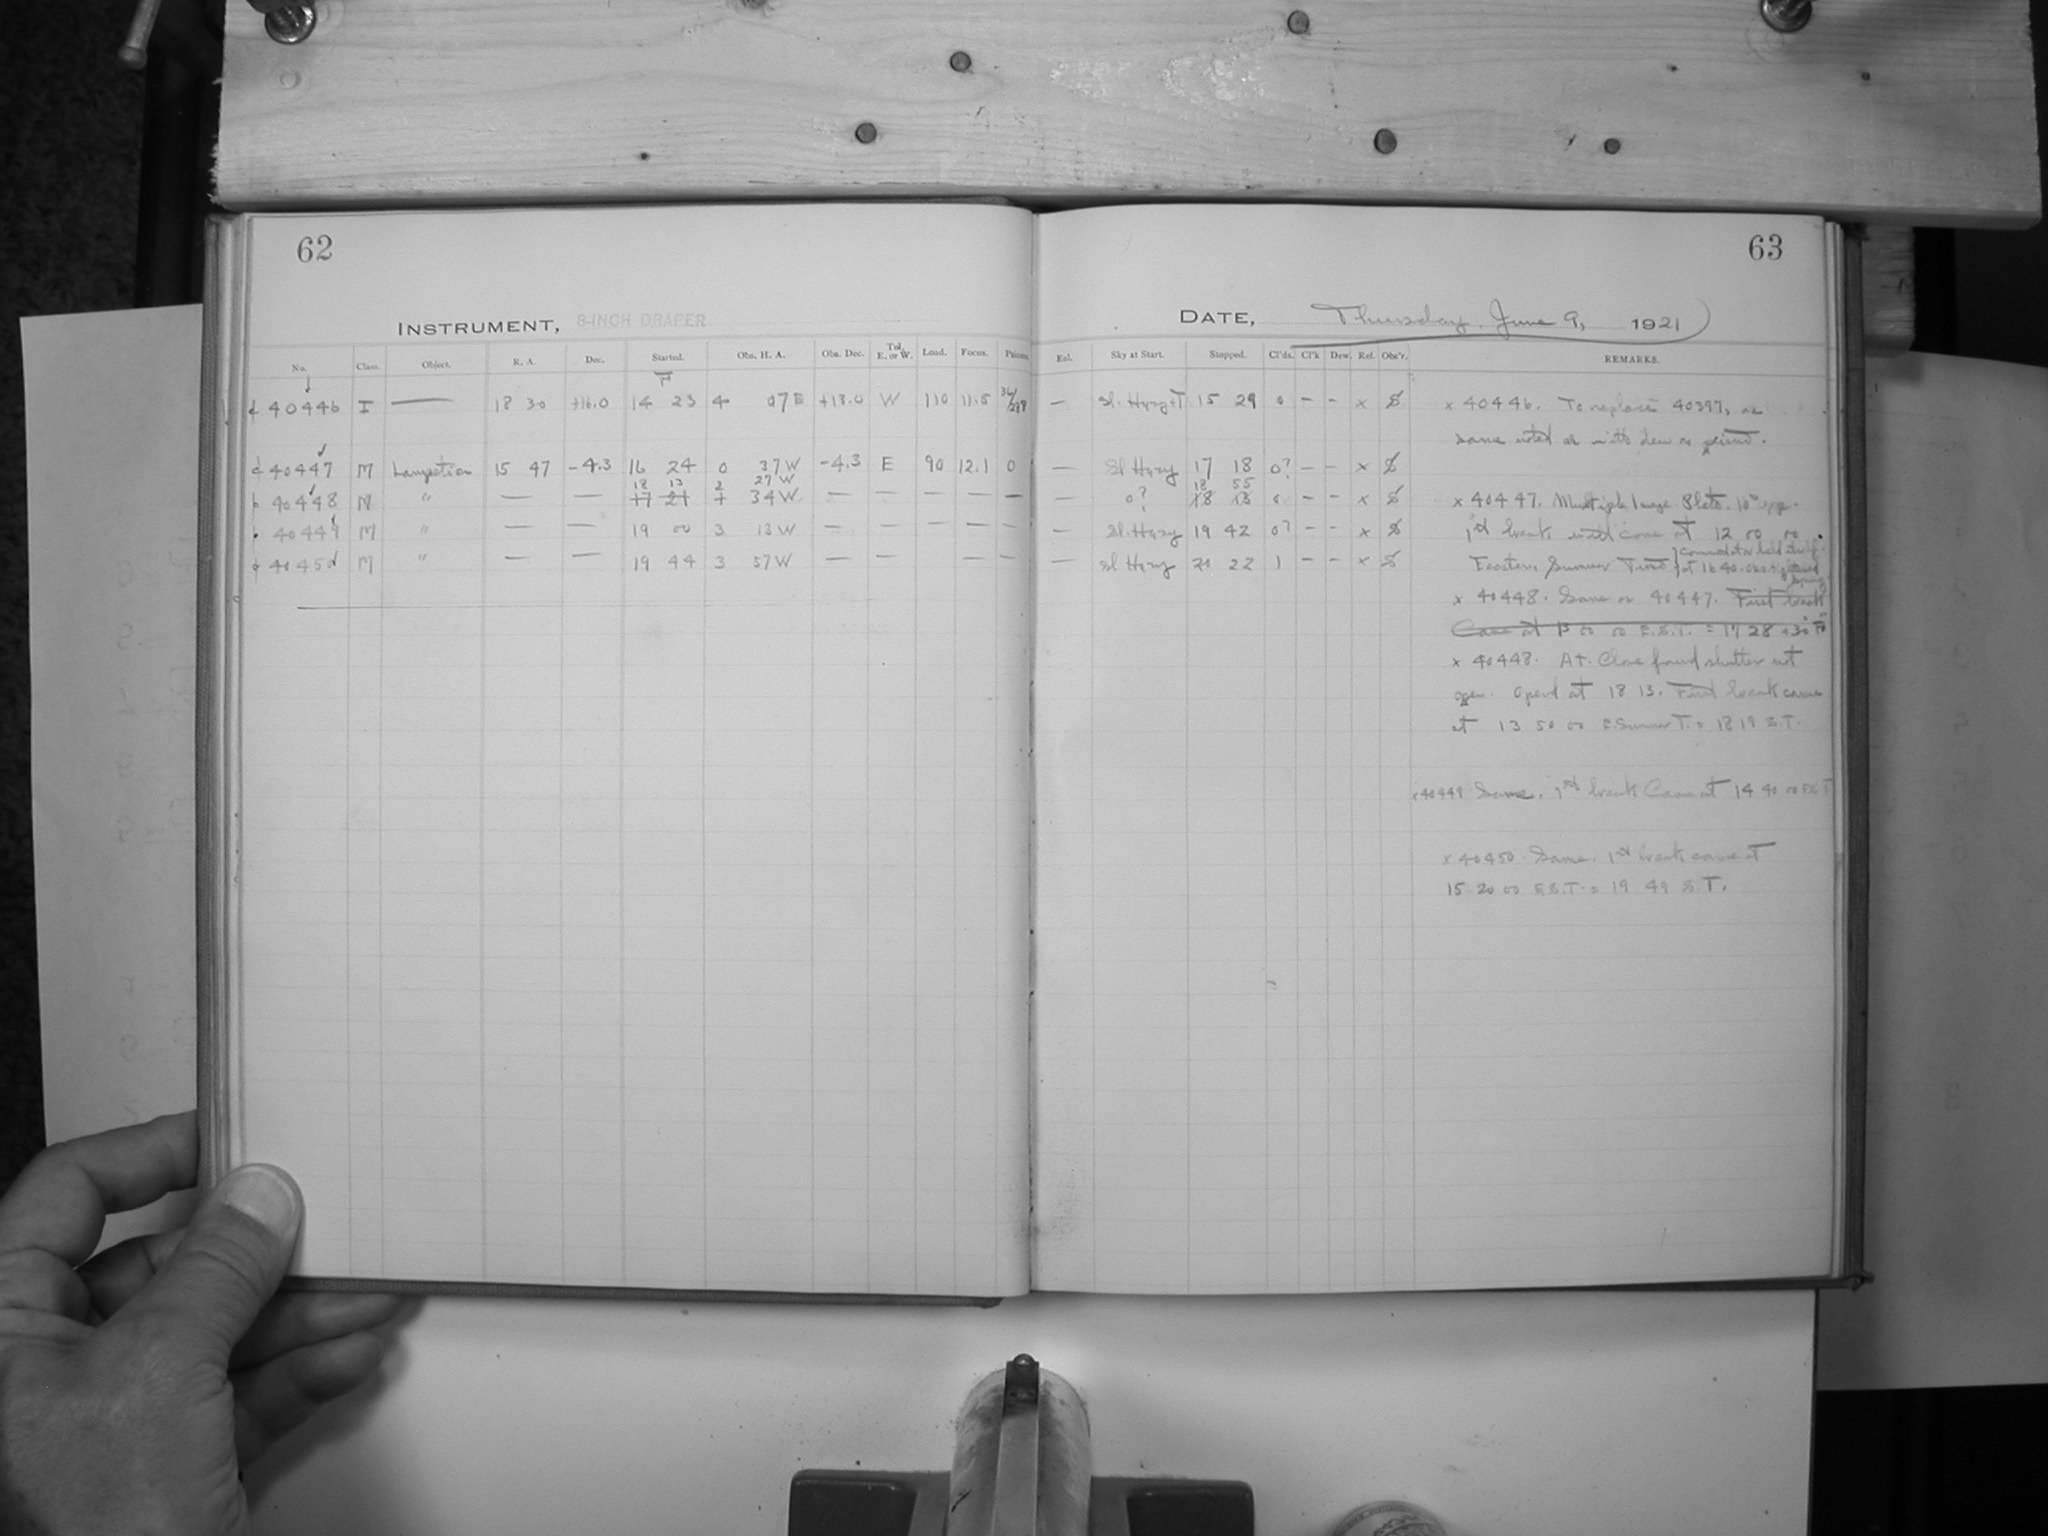 62
INSTRUMENT, 8-INCH DRAPER
No. Class. Object. R. A. Dec. Started. Obs. H. A. Obs. Dec. Tel. E. or W. Load. Focus.
40446 I — 18 30 +16.0 14 23 4 07 E +18.0 W 110 11.5
40447 M 15 47 -4.3 16 24 0 37 W -4.3 E 90 12.1 0
18 13 2 27 W
40448 M " — — 17 21 1 34 W — — — — —
40449 M " — — 19 00 3 13 W — — — — —
40450 M " — — 19 44 3 57 W — — — — —
63
DATE, Thursday, June 9, 1921
Sky at Start. Stopped. Cl'ds. Cl'k Dew. Ref. Obs'r. REMARKS.
— Sl. Hazy + T 15 29 0 – – x S
— Sl Hazy 17 18 0? – – x S
18 55
— 0? 18 13 0 – – x S
— Sl. Hazy 19 42 0? – – x S
— Sl Hazy 20 22 1 – – x S
x 40446. To replace 40397, as
same noted as with dew on
x 40447. Multiple Image Plate. 10m
1st break came at 12 00 00
Eastern Summer Time at 16 40
x 40448. Same as 40447. First break
Came at 13 00 00 E.S.T. = 17 28
x 40448. At Close found shutter not
open. Opened at 18 13. First break came
at 13 50 00 E. Summer T. = 18 19 S.T.
x 40449 Same. 1st break Came at 14 40 00 E.S.T
x 40450. Same. 1st break came at
15 20 00 E.S.T. = 19 49 S.T.